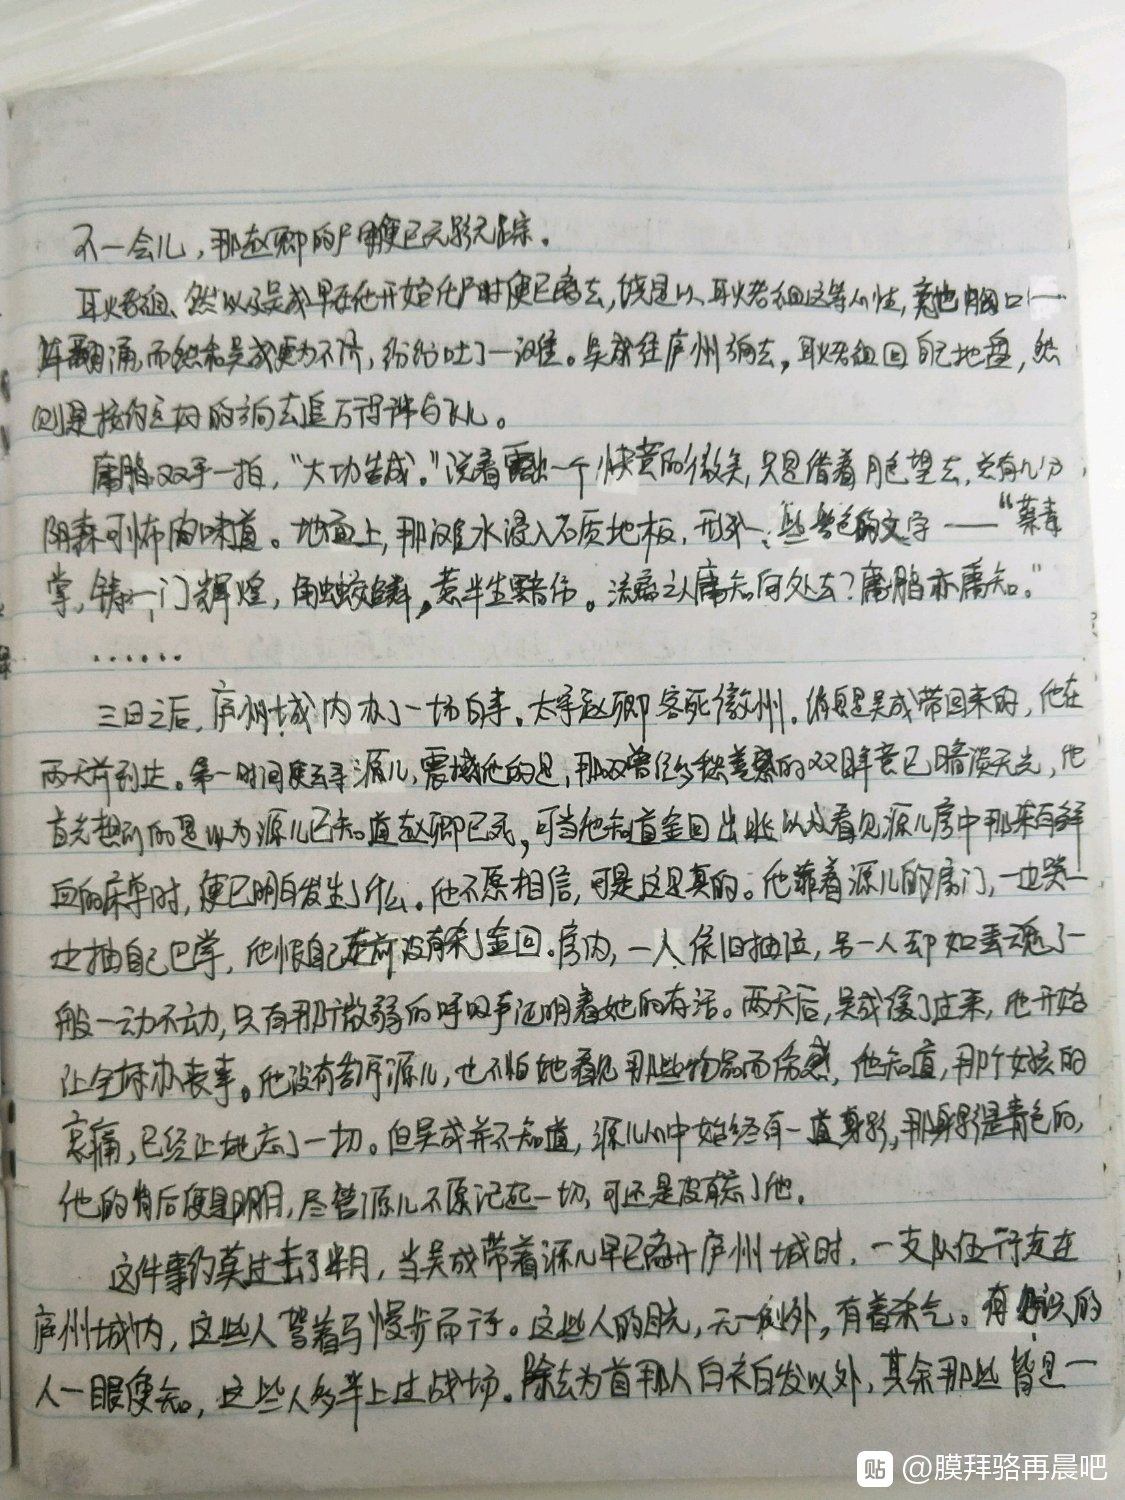 不一会儿，那赵卿的尸身便已无影无踪。
耳火老祖、然以及吴成早在他开始化尸时便已离去，饶是以耳火老祖这等心性，竟也胸口一
阵翻涌，而然和吴成更为不济，纷纷吐了一滩。吴成往庐州方向去，耳火老祖回自己地盘，然
则是按约定好的方向去追万得详与飞儿。
庸鹏双手一拍，“大功告成。”说着露出一个快意的微笑，只是借着月色望去，总有几分
阴森可怖的味道。地面上，那滩水浸入石质地板，形成一些 色的文字——“蔡青
掌，铸一门辉煌，角 蛟鳞，惹半生 伤。流 之人庸知何处去？庸鹏亦庸知。”
……
三日之后，庐州城内办了一场白事。太守赵卿客死徽州。消息是吴成带回来的，他在
两天前到达。第一时间便去寻源儿，震撼他的是，那双曾经多愁善感的双眸竟已暗淡无光，他
首先想到的是以为源儿已知道赵卿已死，可当他知道金回出 以及看见源儿房中那染有鲜
血的床单时，便已明白发生了什么。他不愿相信，可是这是真的。他靠着源儿的房门，一边哭一
边抽自己巴掌，他恨自己 前没有杀了金回。房内，一人依旧抽泣，另一人却如丢了魂
般一动不动，只有那个微弱的呼吸声证明着她的存活。两天后，吴成缓了过来，他开始
让全城办丧事。他没有告诉源儿，也不怕她看见那些物品而伤感，他知道，那个女孩的
哀痛，已经让她忘了一切。但吴成并不知道，源儿心中始终有一道身影，那身影是青色的，
他的背后便是明月，尽管源儿不愿记起一切，可还是没有忘了他。
这件事约莫过去了半月，当吴成带着源儿早已离开庐州城时，一支队伍行走在
庐州城内，这些人驾着马慢步而行。这些人的目光，无一例外，有着杀气。有 识的
人一眼便知，这些人多半上过战场。除去为首那人白衣白发以外，其余那些皆是一
贴 @膜拜骆再晨吧